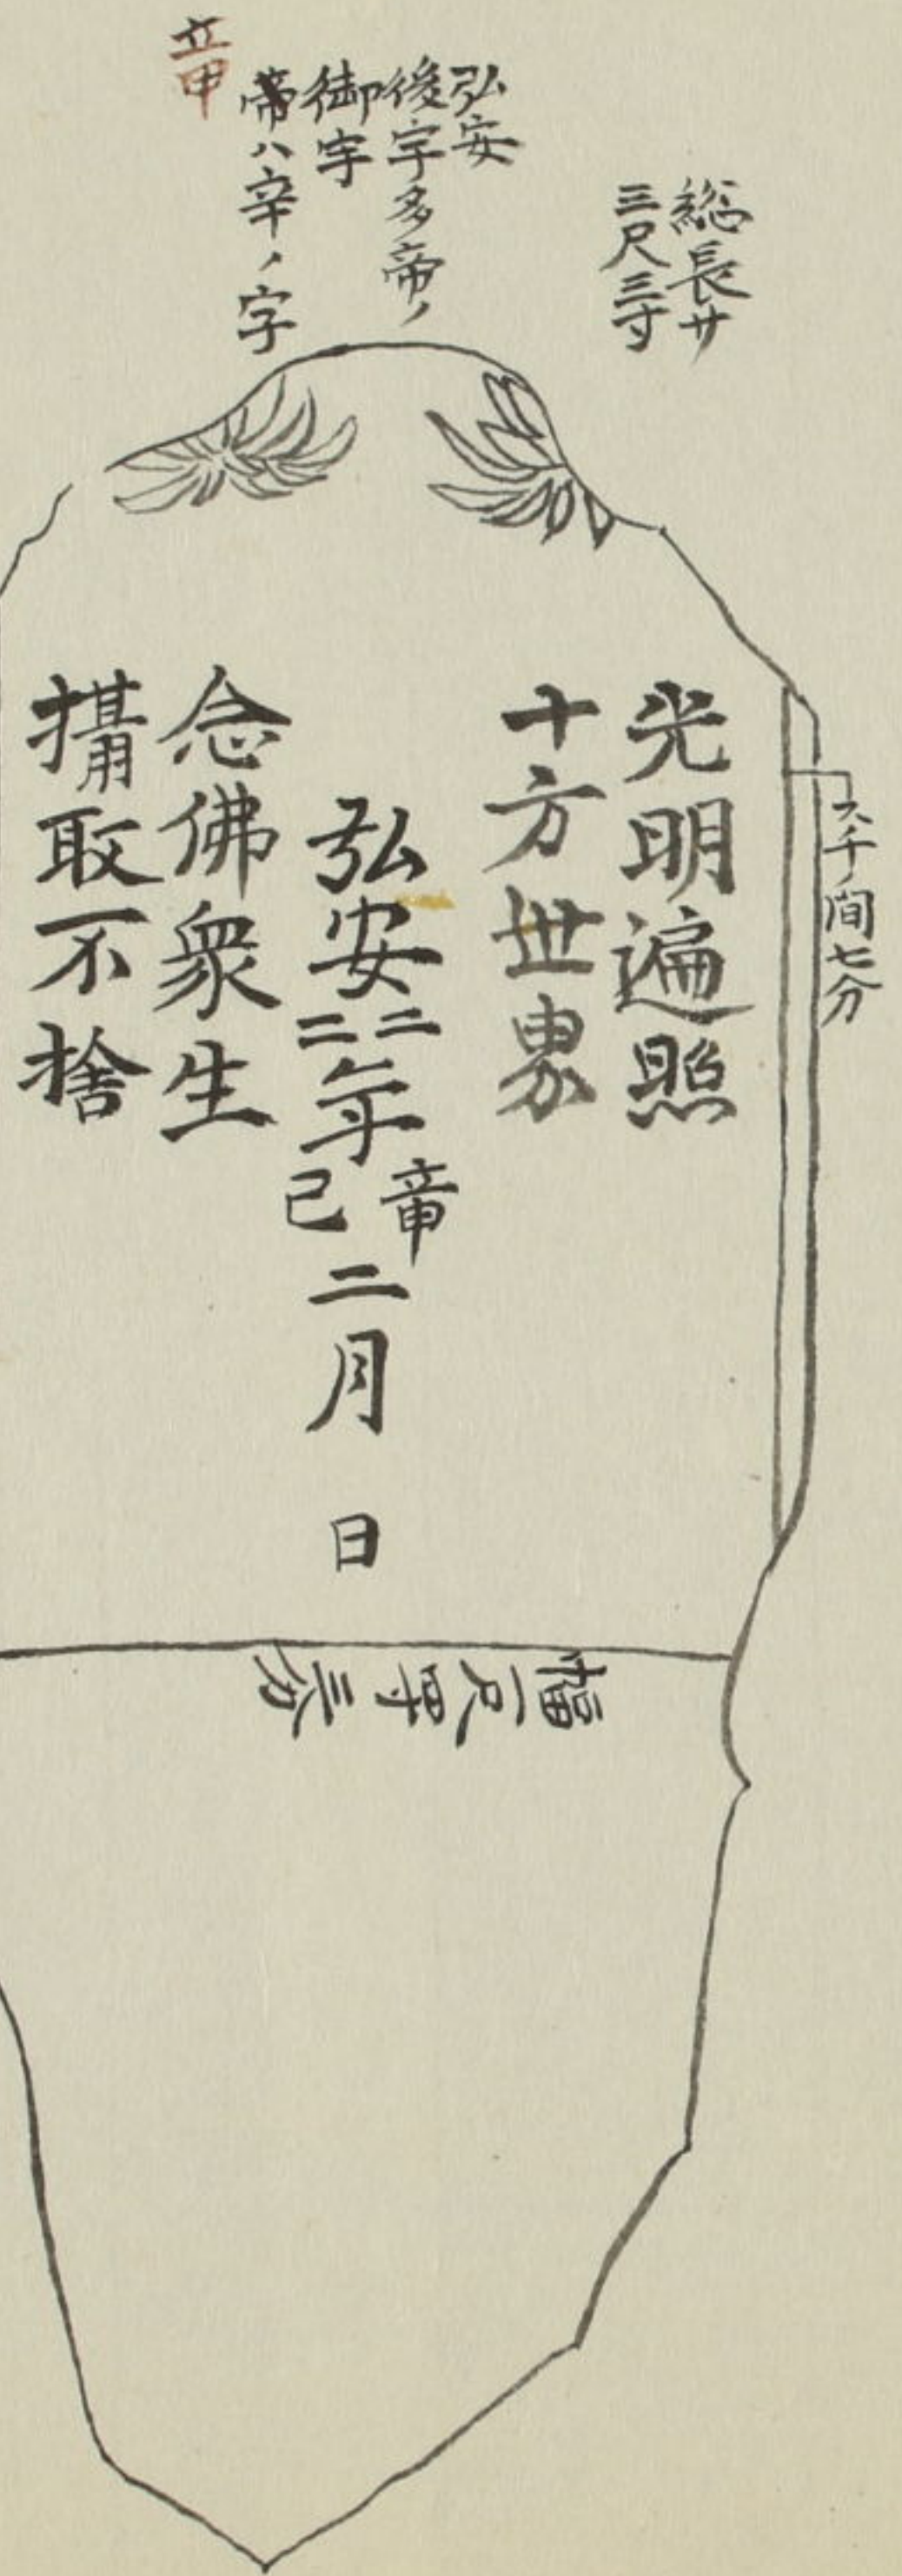 総長サ
三尺三寸
弘安
後宇多帝ノ
御宇
帝ハ辛ノ字
スチノ間七分
光明遍照
十方世界
弘安二二年
辛
巳
二月
日
念佛衆生
攝取不捨
幅一尺
三分